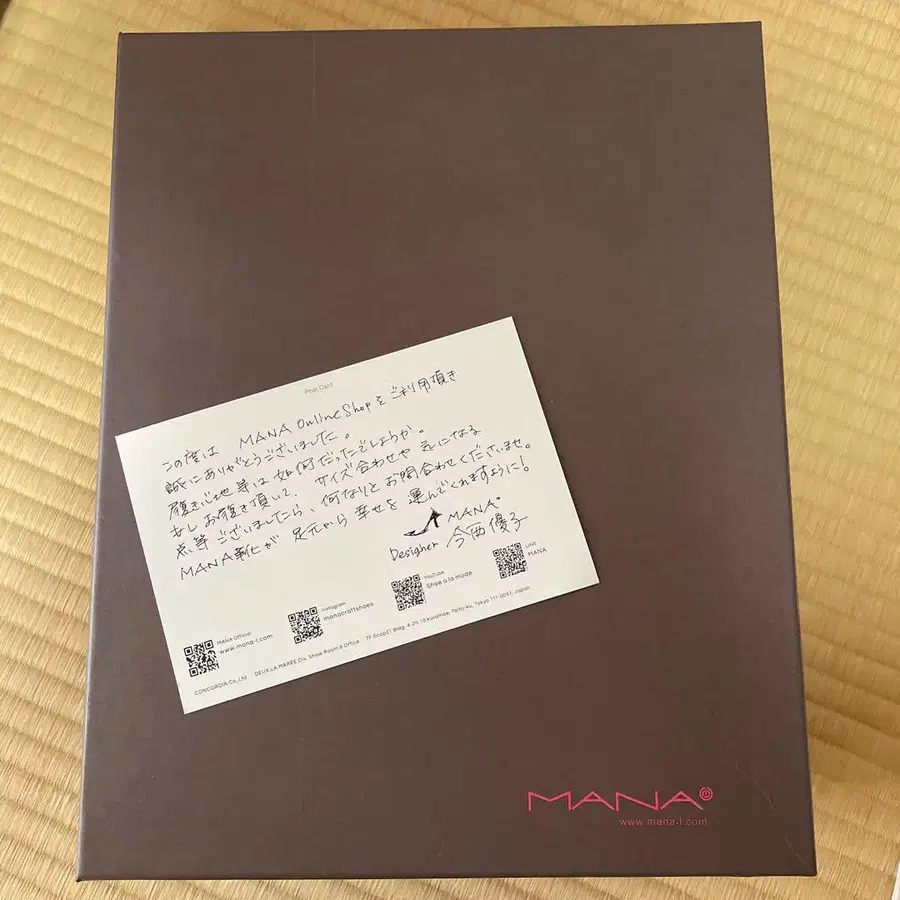 Post Card
この度は MANA OnlineShopをご利用頂き
誠にありがとうございました。
履き心地等は如何だったでしょうか。
もしお履き頂いて、サイズ合わせや気になる
点等ございましたら、何なりとお問合わせくださいませ。
MANA靴が 足元から幸せを運んでくれますように!
MANA®
Designer 今西優子
MANA Official
www.mana-l.com
Instagram
manacraftshoes
YouTube
Shoe a la mode
LINE
MANA
CONCORDIA.Co,.Ltd DEUX LA MARÉE Div. Show Room & Office 7F Soap21 Bldg. 4-20-10 Kuramae, Taito-ku, Tokyo 111-0051, Japan
MANA®
www.mana-l.com